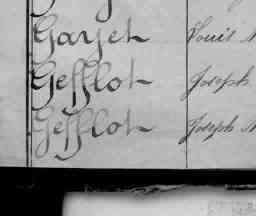 Garjet Louis
Gefflot Joseph
Gefflot Joseph